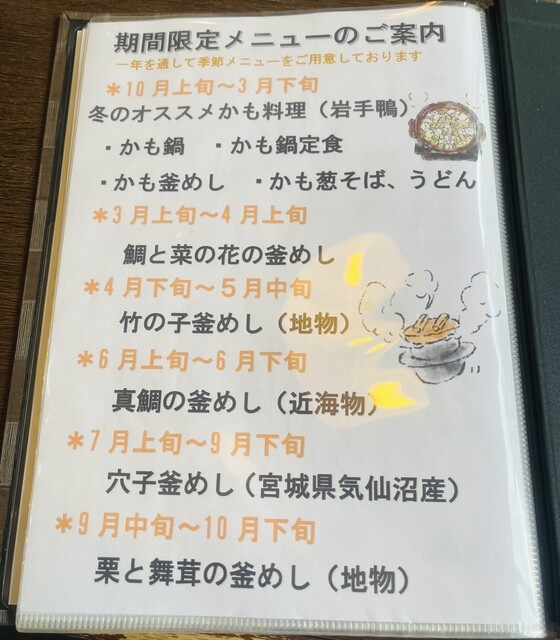 期間限定メニューのご案内
一年を通して季節メニューをご用意しております
＊10月上旬～3月下旬
冬のオススメかも料理（岩手鴨）
・かも鍋　・かも鍋定食
・かも釜めし　・かも葱そば、うどん
＊3月上旬～4月上旬
鯛と菜の花の釜めし
＊4月下旬～5月中旬
竹の子釜めし（地物）
＊6月上旬～6月下旬
真鯛の釜めし（近海物）
＊7月上旬～9月下旬
穴子釜めし（宮城県気仙沼産）
＊9月中旬～10月下旬
栗と舞茸の釜めし（地物）